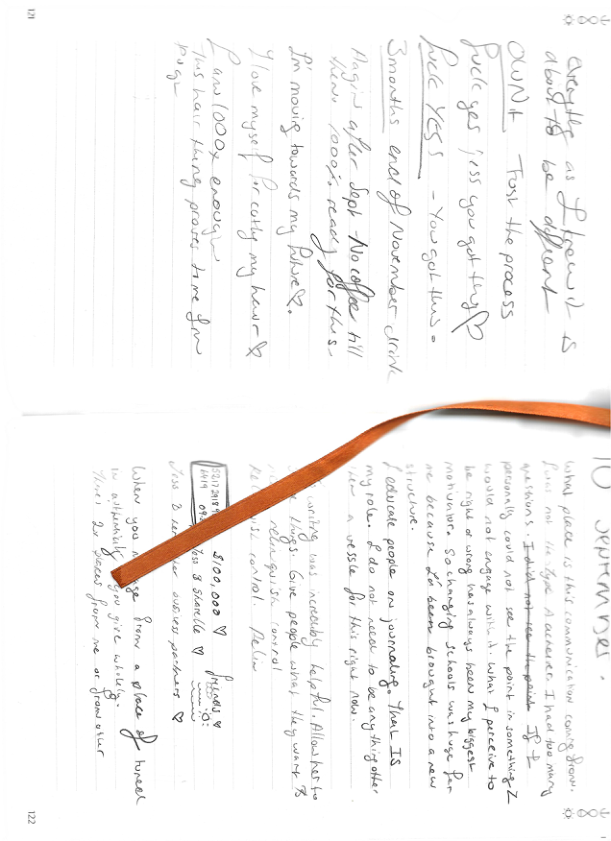 121
everything as I know it is
about to be different
OWN it Trust the process
fuck yes jess you got this ♡
fuck YES - You got this.
3 months end of November drink
Magic after Sept - No coffee till
then 1000% ready for this.
I'm moving towards my future ♡.
I love myself for cutting my hair ♡
I am 1000x enough
This hair thing proves to me I'm
10 SEPTEMBER.
What place is this communication coming from.
I was not the type A achiever. I had too many
questions. I did not see the point If I
personally could not see the point in something I
would not engage with it. What I perceive to
be right or wrong has always been my biggest
motivator. So changing schools was huge for
me because I'd been brought into a new
structure.
I educate people on journaling. That IS
my role. I do not need to be anything other
than a vessle for this right now.
writing was incredibly helpful. Allow her to
things. Give people what they want &
relinquish control
control.
$100,000 ♡ friends ♡
& Shanelle ♡
business partners ♡
When you from a place of
authentically you give wholely.
2x pieces from me or from other
122